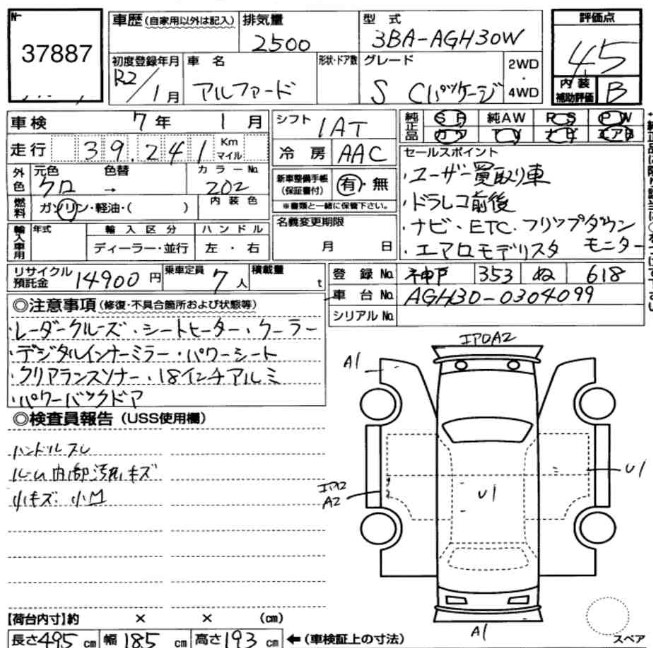 No.
37887
車歴(自家用以外は記入)
排気量
2500
型式
3BA-AGH30W
評価点
4.5
初度登録年月
R2/1月
車名
アルファード
形状・ドア数
グレード
S Cパッケージ
2WD
・
4WD
内装
補助評価
B
車検 7年 1月
シフト
1AT
純正品
SR 純AW PS PW
カワ TV ナビ エアB
走行 39,241 Km マイル
冷房 AAC
セールスポイント
・ユーザー買取り車
・ドラレコ前後
・ナビ・ETC・フリップダウン
・エアロモデリスタ モニター
外色
元色 色替
クロ →
カラーNo.
202
新車整備手帳
(保証書付)
有・無
※書類と一緒に保管下さい。
燃料
ガソリン・軽油・( )
内装色
名義変更期限
月 日
輸入車用
年式
輸入区分
ディーラー・並行
ハンドル
左・右
リサイクル
預託金
14900円
乗車定員
7人
積載量
t
登録No. 神戸 353 ぬ 618
車台No. AGH30-0304099
シリアルNo.
◎注意事項(修復・不具合箇所および状態等)
・レーダークルーズ・シートヒーター・クーラー
・デジタルインナーミラー・パワーシート
・クリアランスソナー・18インチアルミ
・パワーバックドア
◎検査員報告(USS使用欄)
ハンドルスレ
ルーム内部汚れキズ
小キズ 小凹
A1
A2
U1
U1
A1
スペア
【荷台内寸】約 × × (cm)
長さ495cm 幅185cm 高さ193cm ←(車検証上の寸法)